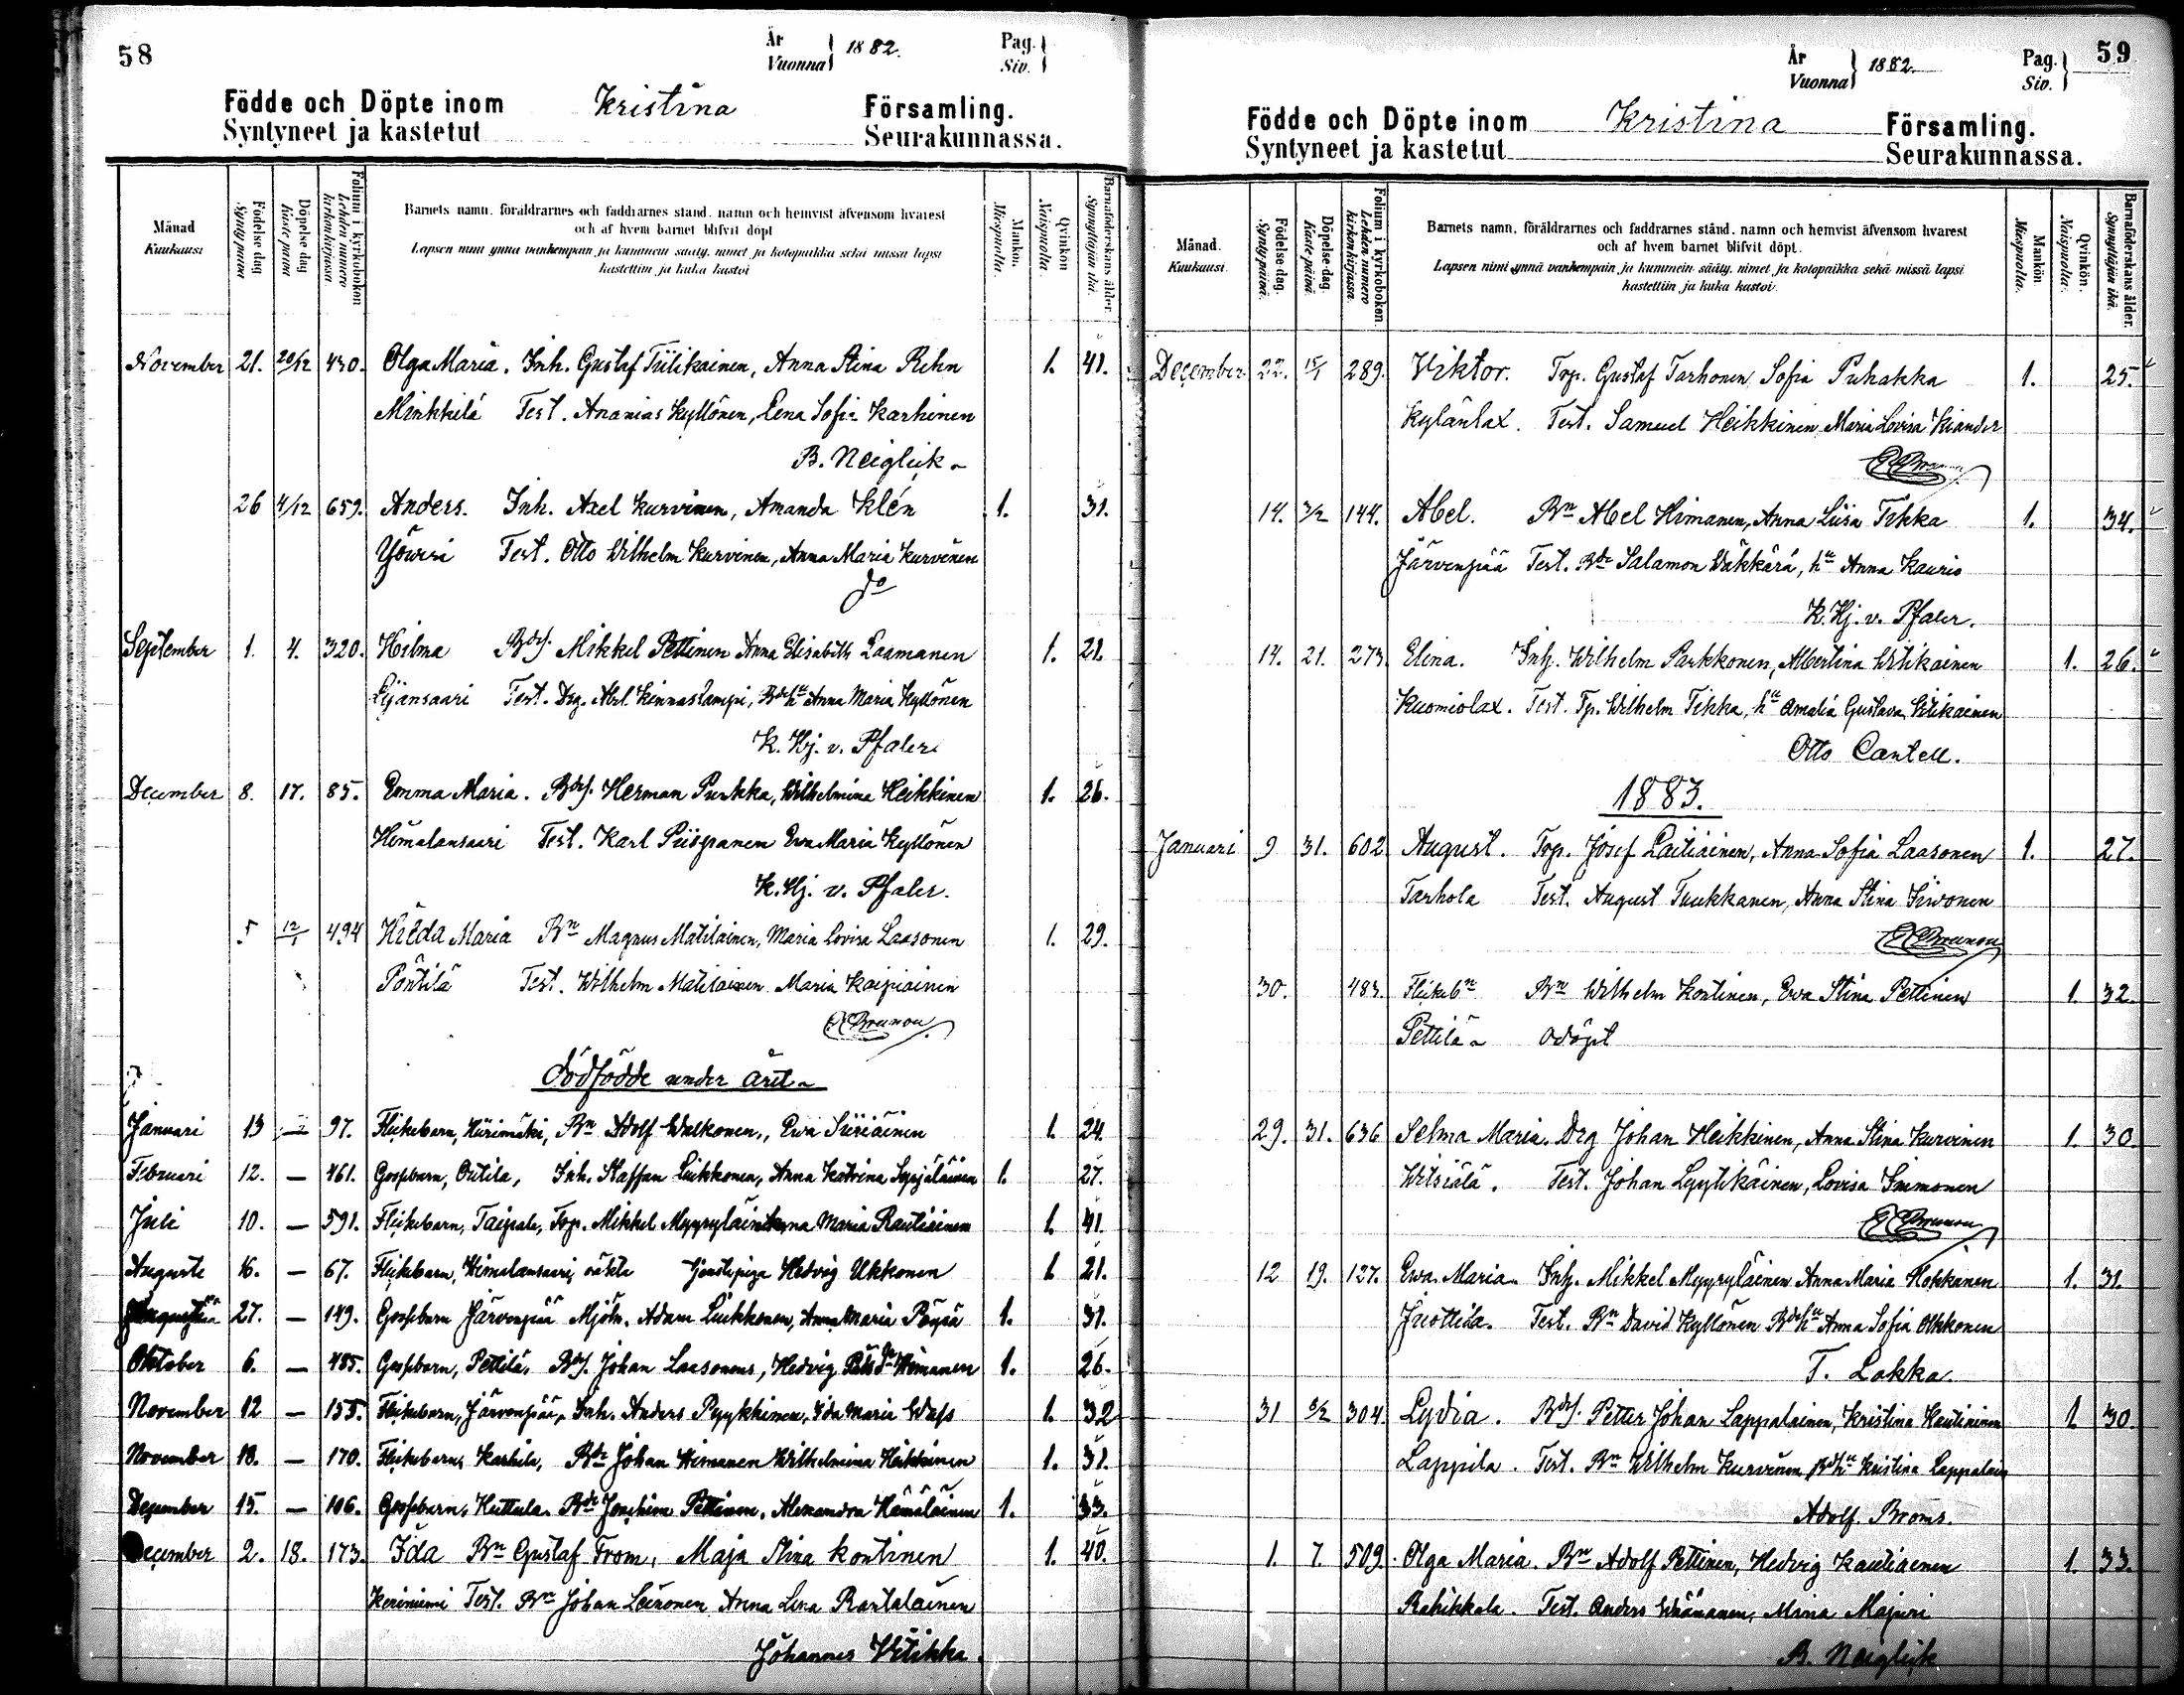 58
År
Vuonna } 1882.
Pag.
Siv. }
Födde och Döpte inom Kristina Församling.
Syntyneet ja kastetut Seurakunnassa.
Månad
Kuukausi
Födelse dag
Synty päivä
Döpelse dag
Kaste päivä
Folium i kyrkoboken
Lehden numero kirkonkirjassa
Barnets namn, föräldrarnes och faddrarnes stånd, namn och hemvist äfvensom hvarest
och af hvem barnet blifvit döpt
Lapsen nimi ynnä vanhempain ja kummein sääty, nimet ja kotopaikka sekä missä lapsi
kastettiin ja kuka kastoi
Mankön.
Miespuolia.
Qvinkön
Naispuolia.
Barnaföderskans ålder.
Synnyttäjän ikä.
November 21. 20/12 430. Olga Maria. Inh. Gustaf Tiilikainen, Anna Stina Rehn 1. 41.
Minkkilä Test. Ananias Kyllönen, Lena Sofia Karhinen
B. Neiglick
26 4/12 659. Anders. Inh. Axel Kurvinen, Amanda Klén 1. 31.
Test. Otto Wilhelm Kurvinen, Anna Maria Kurvinen
do
September 1. 4. 320. Hilma Bdes. Mikkel Pettinen Anna Elisabeth Laamanen 1. 21.
Test. Drg. Abel Kinnaslampi, Bdeha Anna Maria Kyllönen
K. Hj. v. Pfaler
December 8. 17. 85. Emma Maria. Bdes. Herman Purkka, Wilhelmina Heikkinen 1. 26.
Himalansaari Test. Karl Piispanen Ewa Maria Kyllönen
K. Hj. v. Pfaler.
5 12/1 494 Hilda Maria Bn Magnus Matilainen, Maria Lovisa Laasonen 1. 29.
Pöntilä Test. Wilhelm Matilainen Maria Kaipiainen
Brunou
dödfödde under året
Januari 13 — 97. Flickebarn, Hiirimäki, Bn Adolf Walkonen, Ewa Siiriäinen 1. 24.
Februari 12. — 461. Gossebarn, Outila, Inh. Staffan Luikkonen, Anna Katrina Seppäläinen 1. 27.
Juli 10. — 591. Flickebarn, Taipale, Torp. Mikkel Myyryläinen Anna Maria Rautiainen 1. 41.
Augusti 16. — 67. Flickebarn, Himalansaari, oäkta Tjenstepiga Hedvig Ukkonen 1. 21.
27. — 149. Gossebarn Järvenpää Mjöln. Adam Luikkonen, Anna Maria Pöysä 1. 31.
Oktober 6. — 485. Gossebarn, Pettilä, Bdes. Johan Laasonens, Hedvig Himanen 1. 26.
November 12 — 155. Flickebarn, Järvenpää, Inh. Anders Pyykkinen, Ida Maria Wass 1. 32
November 18. — 170. Flickebarn, Karhila, Bde Johan Himanen Wilhelmina Heikkinen 1. 31.
December 15. — 106. Gossebarn, Huttula, Bde Joachim Pettinen, Alexandra Hämäläinen 1. 33.
December 2. 18. 173. Ida Bn Gustaf From, Maja Stina Kontinen 1. 40.
Koriniemi Test. Bn Johan Leinonen Anna Lena Rantalainen
Johannes Vitikka.
59
År
Vuonna } 1882.
Pag.
Siv. }
Födde och Döpte inom Kristina Församling.
Syntyneet ja kastetut Seurakunnassa.
Månad.
Kuukausi.
Födelse-dag.
Synty-päivä.
Döpelse-dag.
Kaste-päivä.
Folium i kyrkoboken.
Lehden numero kirkonkirjassa.
Barnets namn, föräldrarnes och faddrarnes stånd, namn och hemvist äfvensom hvarest
och af hvem barnet blifvit döpt.
Lapsen nimi ynnä vanhempain ja kummein sääty, nimet ja kotopaikka sekä missä lapsi
kastettiin ja kuka kastoi.
Mankön.
Miespuolia.
Qvinkön.
Naispuolia.
Barnaföderskans ålder.
Synnyttäjän ikä.
December 22. 15/1 289. Viktor. Torp. Gustaf Tarhonen Sofia Puhakka 1. 25.
Kylänlax. Test. Samuel Heikkinen Maria Lovisa Kiander
Brunou
14. 3/2 144. Abel. Bn Abel Himanen, Anna Liisa Tikka 1. 34.
Järvenpää Test. Bde Salamon Wäkkärä, ha Anna Kauris
K. Hj. v. Pfaler.
14. 21. 273. Elina. Inh. Wilhelm Parkkonen, Albertina Vitikainen 1. 26.
Kuomiolax. Test. Tp. Wilhelm Tikka, ha Amalia Gustava Vitikainen
Otto Cantell.
1883.
Januari 9 31. 602 August. Torp. Josef Laitiainen, Anna Sofia Laasonen 1. 27.
Tarhola Test. August Tuukkanen, Anna Stina Siivonen
Brunou
30. 483. Flickebn Bn Wilhelm Kontinen, Ewa Stina Pettinen 1. 32.
Pettilä odöpt
29. 31. 636 Selma Maria. Drg Johan Heikkinen, Anna Stina Kurvinen 1. 30
Test. Johan Lyytikäinen, Lovisa Immonen
Brunou
12 19. 127. Ewa Maria Inh. Mikkel Myyryläinen Anna Maria Hokkanen 1. 31.
Test. Bn David Kyllönen Bdeha Anna Sofia Ukkonen
T. Lakka.
31 3/2 304. Lydia. Bdes. Petter Johan Lappalainen, Kristina Hautiainen 1 30
Lappila. Test. Bn Wilhelm Kurvinen Bdeha Kristina Lappalain
Adolf Broms.
1. 7. 509. Olga Maria. Bn Adolf Pettinen, Hedvig Kautiaenen 1. 33.
Rahikkala. Test. Anders Wäänänen, Mina Majuri
B. Neiglick